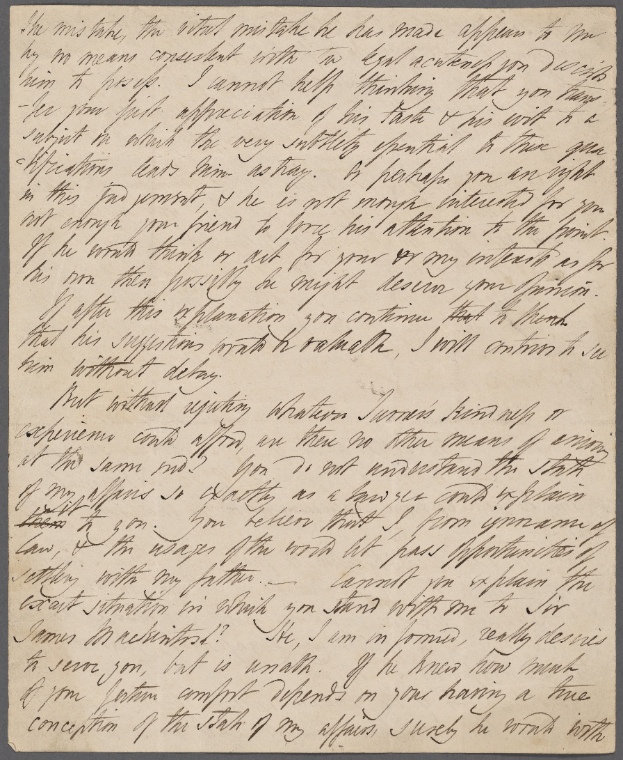 The mistake, the vital mistake he has made appears to me
by no means consistent with the legal acuteness you describe
him to possess. I cannot help thinking that you trans
-fer your just appreciation of his taste & his wit to a
subject on which the very subtlety essential to these qua
-lifications leads him astray. Or perhaps you are right
in this judgement, & he is not enough interested for you
not enough your friend to force his attention to the point.
If he would think or act for your or my interest as for
his own then possibly he might deserve your opinion.
If after this explanation you continue that to think
that his suggestions would be valuable, I will contrive to see
him without delay.
But without rejecting whatever Turner's kindness or
experience could afford are there no other means of arriving
at the same end? You do not understand the state
of my affairs so exactly as a lawyer could explain
them it to you. You believe that I, from ignorance of
law, & the usages of the world let pass opportunities of
settling with my father. — Cannot you explain the
exact situation in which you stand with me to Sir
James Mackintosh? He, I am informed, really desires
to serve you, but is unable. If he knew how much
of your future comfort depends on your having a true
conception of the state of my affairs, surely he would with